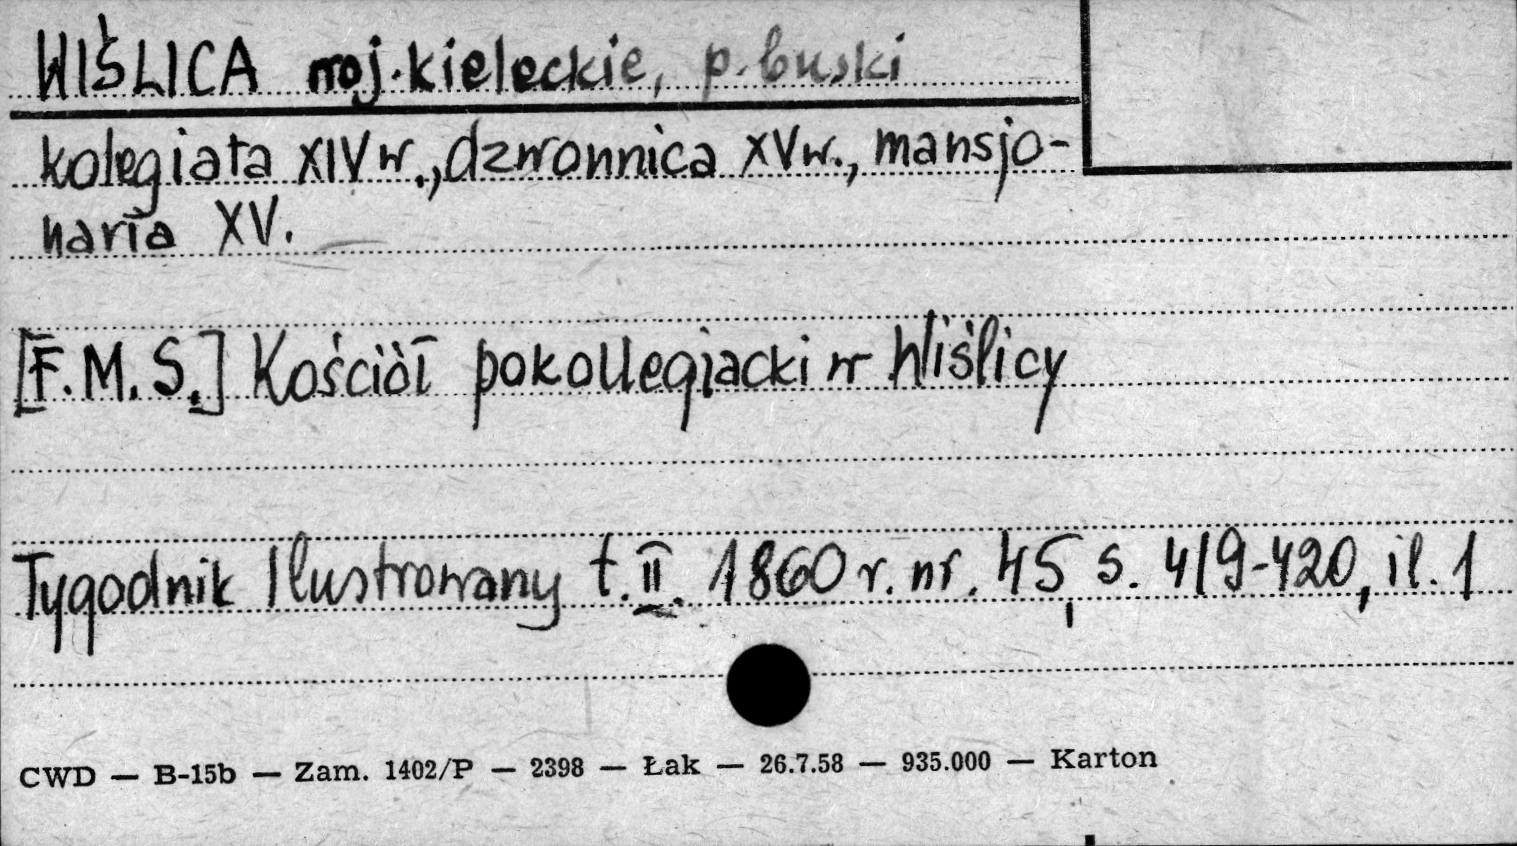 WIŚLICA woj. kieleckie, p. buski
kolegiata XIV w., dzwonnica XV w., mansjo-
naria XV.
[F. M. S.] Kościół pokollegjacki w Wiślicy
Tygodnik Ilustrowany t. II. 1860 r. nr. 45, s. 419-420, il. 1
CWD — B-15b — Zam. 1402/P — 2398 — Łak — 26.7.58 — 935.000 — Karton